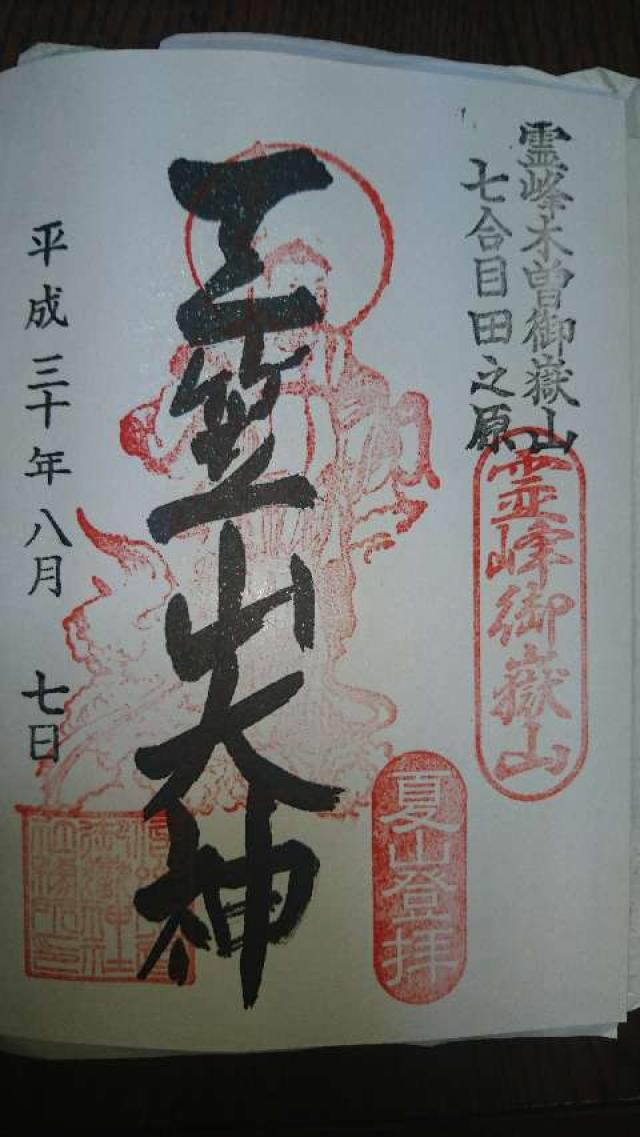 霊峰木曽御嶽山
七合目田之原
霊峰御嶽山
夏山登拝
三笠山大神
平成三十年八月 七日